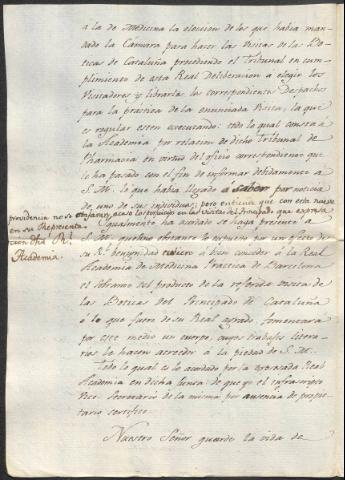 a la de Medicina la eleccion de los que habia man-
dado la Camara para hacer las visitas de las Bo-
ticas de Cataluña procediendo el Tribunal en cum-
plimiento de esta Real Deliberacion a elegir los
Visitadores y librarla los correspondientes Despachos
para la práctica de la enunciada Visita, la que
es regular esten executando: todo lo qual consta á
la Academia por relacion de dicho Tribunal de
Pharmacia en virtud del oficio correspondiente que
le ha pasado con el fin de informar debidamente a
S. M. lo que habia llegado a saber por noticia
de uno de sus individuos; pero entiende que con esta nueva
providencia no se
en su Representa-
cion dha Rl.
Academia.
Igualmente ha acordado se haga presente a
S. M. que si no obstante lo expuesto por un efecto de
su Rl. benignidad tuviere á bien conceder á la Real
Academia de Medicina Practica de Barcelona
el sobrante del producto de la referida visita de
las Boticas del Principado de Cataluña
ó lo que fuere de su Real agrado, fomentará
por este medio un cuerpo, cuyos trabajos litera-
rios lo hacen acreedor á la piedad de S. M.
Todo lo qual es lo acordado por la expresada Real
Academia en dicha Junta: de que yo el infrascripto
Vice-Secretario de la misma por ausencia de propie-
tario certifico.
Nuestro Señor guarde la vida de